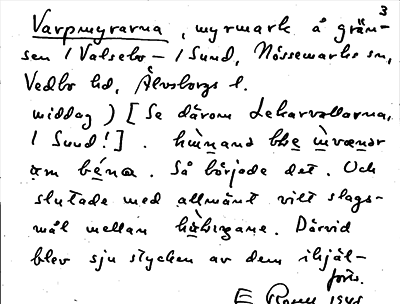 3
Varpmyrarna, myrmark å grän-
sen / Valsebo - / Sund, Nössemarks sn,
Vedbo hd, Älvsborgs l.
middag) [Se därom Lekarvallarna,
/ Sund!]. 
bena. Så började det. Och
slutade med allmänt vilt slags-
mål mellan. Därvid
blev sju stycken av dem ihjäl-
forts.
E 1945